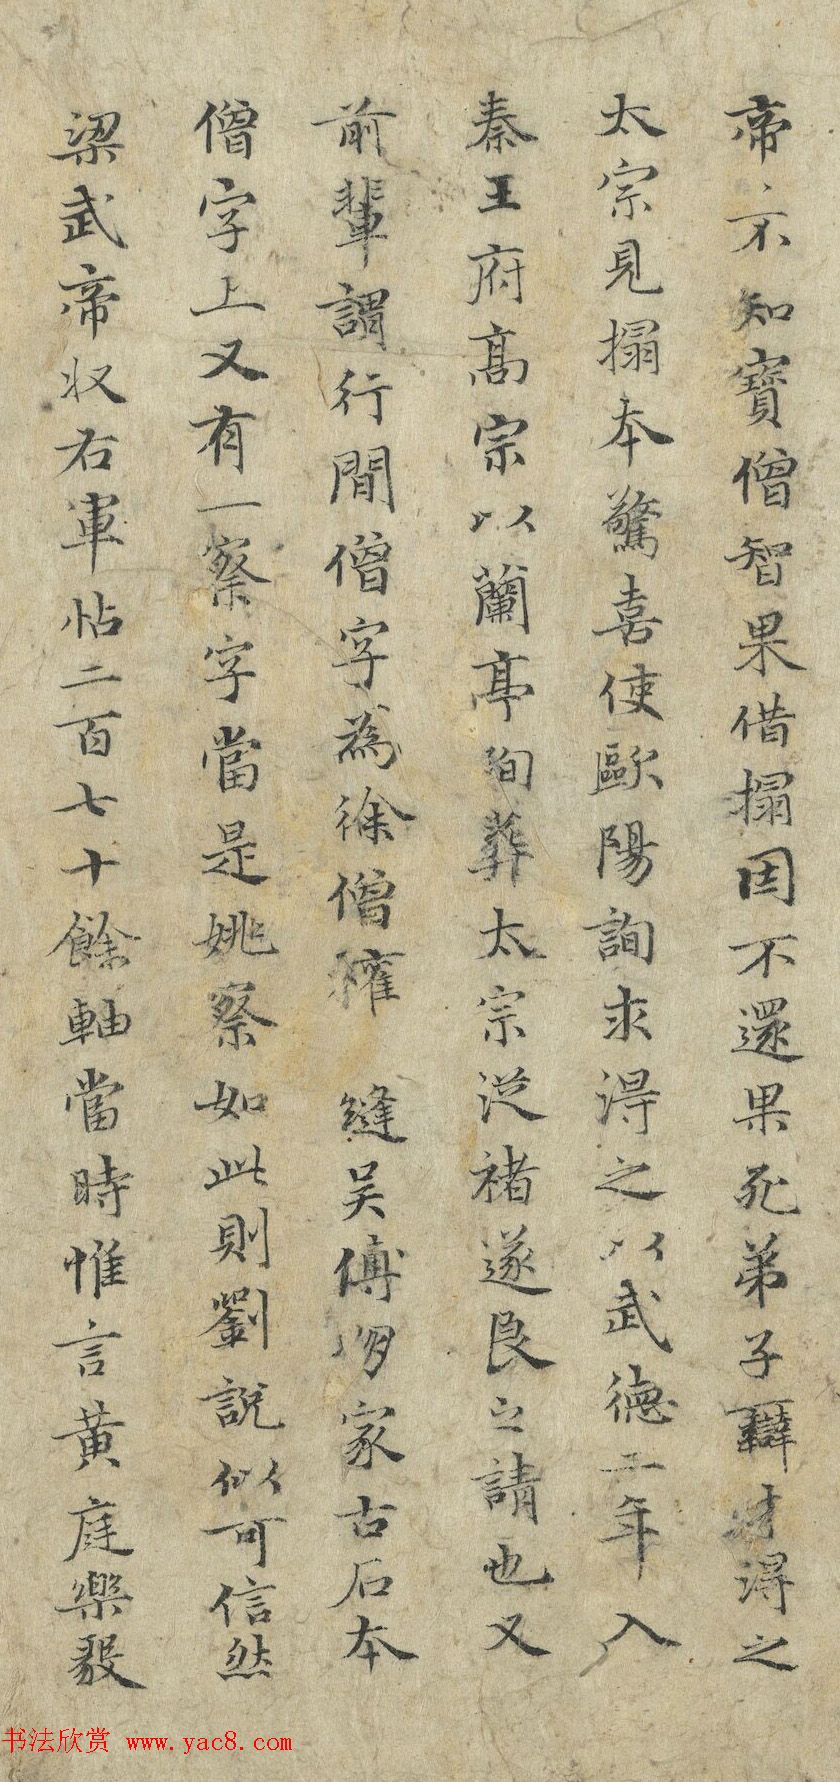 帝亦不知寶僧智果借搨因不還果死弟子辯才得之
太宗見搨本驚喜使歐陽詢求得之以武德二年入
秦王府高宗以蘭亭殉葬太宗從褚遂良之請也又
前輩謂行間僧字為徐僧權 縫吳傅朋家古石本
僧字上又有一察字當是姚察如此則劉說似可信然
梁武帝收右軍帖二百七十餘軸當時惟言黃庭樂毅
书法欣赏 www.yac8.com